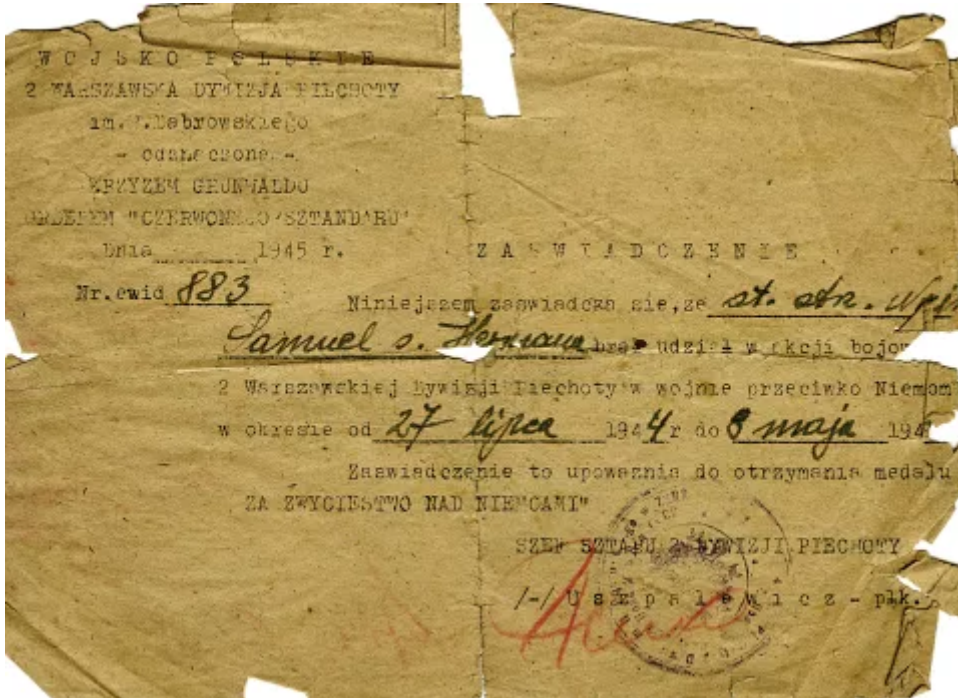 WOJSKO POLSKIE
2 WARSZAWSKA DYWIZJA PIECHOTY
im. Dabrowskiego
- odznaczona -
KRZYZEM GRUNWALDU
ORDEREM "CZERWONEGO SZTANDARU"
Dnia 1945 r.
ZASWIADCZENIE
Nr.ewid 883
Niniejszem zaswiadcza sie,ze st. str.
Samuel s. Hermana brał udział w akcji bojow
2 Warszawskiej Dywizji Piechoty w wojnie przeciwko Niemcom
w okresie od 27 lipca 1944 r do 8 maja 194
Zaswiadczenie to upowaznia do otrzymania medalu
ZA ZWYCIESTWO NAD NIEMCAMI"
SZEF SZTABU 2 DYWIZJI PIECHOTY
/-/ Uszpalewicz - płk.